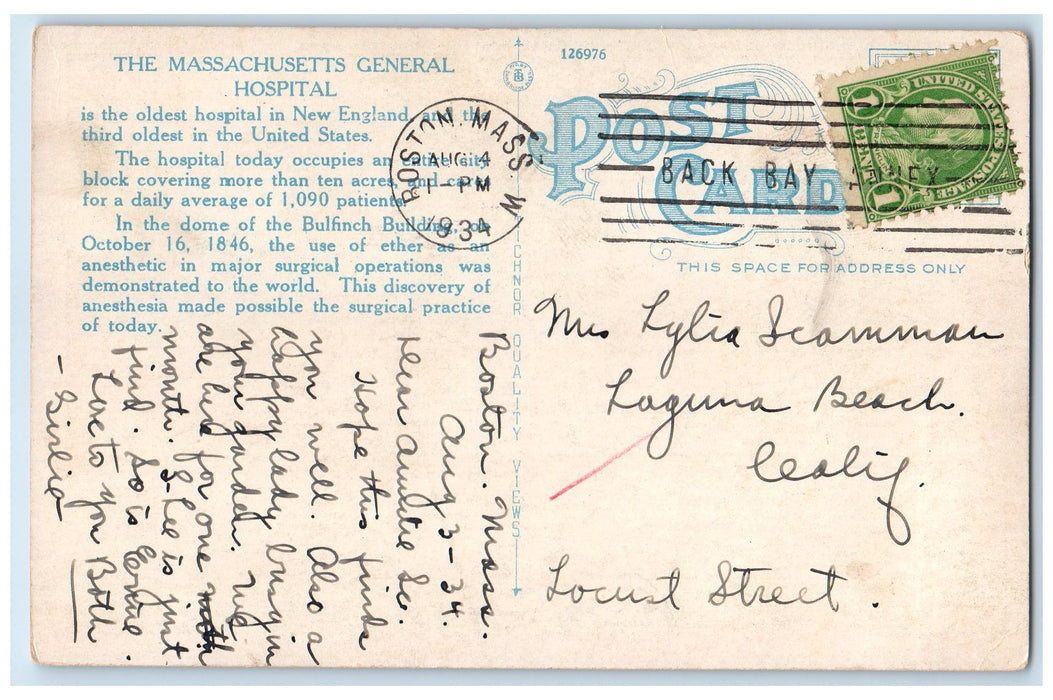 THE MASSACHUSETTS GENERAL
HOSPITAL
is the oldest hospital in New England, and the
third oldest in the United States.
The hospital today occupies an entire city
block covering more than ten acres, and cares
for a daily average of 1,090 patients.
In the dome of the Bulfinch Building, on
October 16, 1846, the use of ether as an
anesthetic in major surgical operations was
demonstrated to the world. This discovery of
anesthesia made possible the surgical practice
of today.
Boston. Mass.
Aug 3-34.
Dear Auntie Lo.
Hope this finds
you well. Also a
happy lady busy in
your garden. We
are here for one
month. is just
fine. So is Ernie.
Love to you Both
- Girlie -
TICHNOR QUALITY VIEWS
126976
POST
CARD
BOSTON. MASS W
AUG 4
1-PM
1934
BACK BAY ANNEX
UNITED STATES POSTAGE
THIS SPACE FOR ADDRESS ONLY
Mrs Lylia Scamman
Laguna Beach.
Calif.
Locust Street.